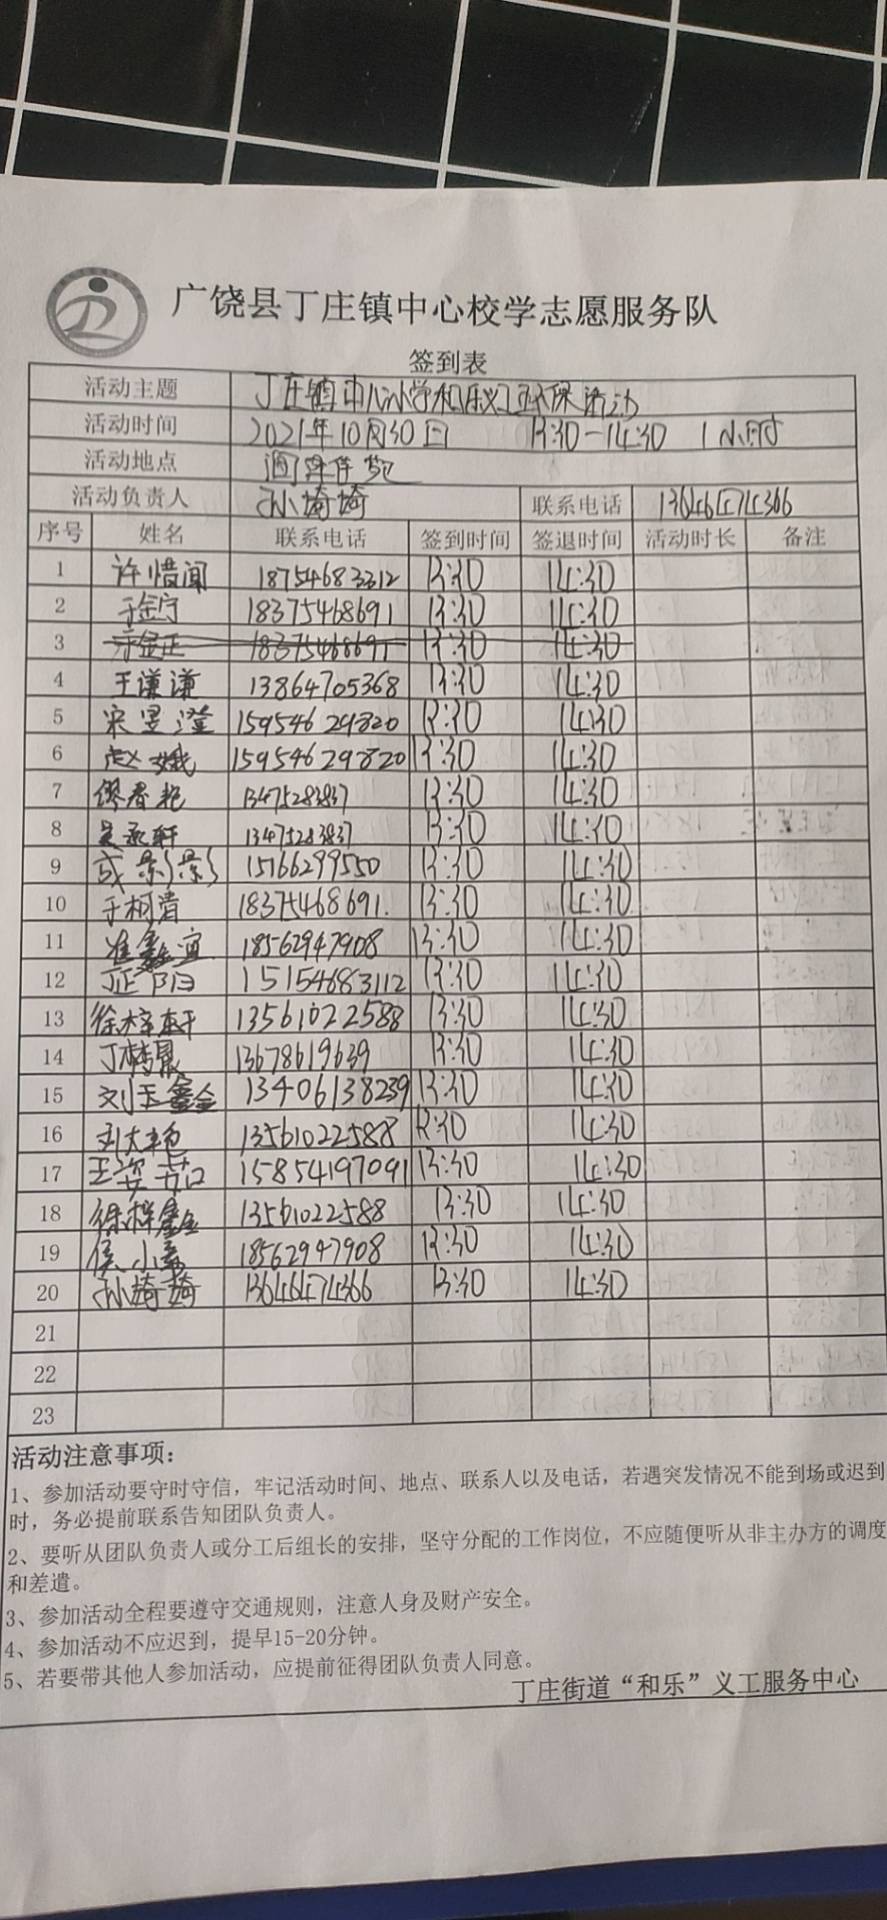 广饶县丁庄镇中心校学志愿服务队
签到表
活动主题 丁庄镇中心小学和乐义工环保活动
活动时间 2021年10月30日 13:30-14:30 1小时
活动地点
活动负责人 孙婍婍 联系电话 13646474366
序号 姓名 联系电话 签到时间 签退时间 活动时长 备注
1 许惜闻 18754683312 13:30 14:30
2 于金宁 18375468691 13:30 14:30
3 于金正 18375468691 13:30 14:30
4 王谦谦 13864705368 13:30 14:30
5 宋昱澄 15954629820 13:30 14:30
6 赵娥 15954629820 13:30 14:30
7 缪春艳 13475283837 13:30 14:30
8 吴承轩 13475283837 13:30 14:30
9 成影影 15166299550 13:30 14:30
10 于柯清 18375468691. 13:30 14:30
11 崔鑫宜 18562947908 13:30 14:30
12 15154683112 13:30 14:30
13 徐梓轩 13561022588 13:30 14:30
14 丁梓晟 13678619639 13:30 14:30
15 刘玉鑫 13406138239 13:30 14:30
16 刘大艳 13561022588 13:30 14:30
17 王姿茹 15854197091 13:30 14:30
18 徐梓鑫 13561022588 13:30 14:30
19 侯小燕 18562947908 13:30 14:30
20 孙婍婍 13646474366 13:30 14:30
21
22
23
活动注意事项：
1、参加活动要守时守信，牢记活动时间、地点、联系人以及电话，若遇突发情况不能到场或迟到
时，务必提前联系告知团队负责人。
2、要听从团队负责人或分工后组长的安排，坚守分配的工作岗位，不应随便听从非主办方的调度
和差遣。
3、参加活动全程要遵守交通规则，注意人身及财产安全。
4、参加活动不应迟到，提早15-20分钟。
5、若要带其他人参加活动，应提前征得团队负责人同意。
丁庄街道“和乐”义工服务中心